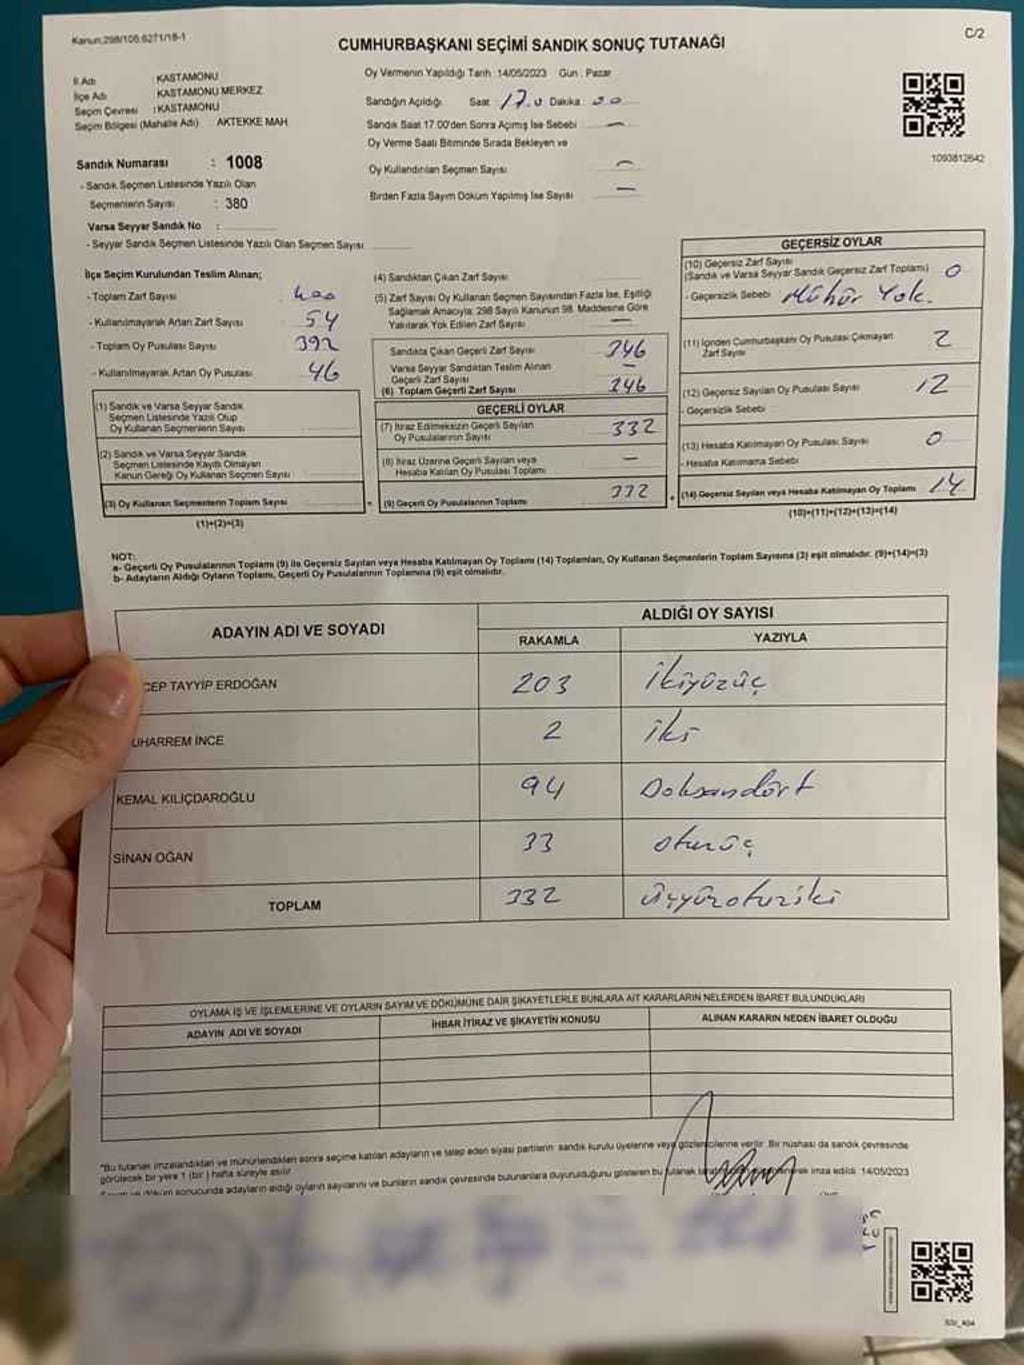 Kanun:298/105:6271/18-1
C/2
CUMHURBAŞKANI SEÇİMİ SANDIK SONUÇ TUTANAĞI
İl Adı : KASTAMONU
İlçe Adı : KASTAMONU MERKEZ
Seçim Çevresi : KASTAMONU
Seçim Bölgesi (Mahalle Adı) AKTEKKE MAH
Oy Vermenin Yapıldığı Tarih :14/05/2023 Gün : Pazar
Sandığın Açıldığı Saat 17.0 Dakika 00
Sandık Saat 17.00'den Sonra Açımış İse Sebebi —
Oy Verme Saati Bitiminde Sırada Bekleyen ve
Oy Kullandırılan Seçmen Sayısı —
Birden Fazla Sayım Döküm Yapılmış İse Sayısı —
1093812642
Sandık Numarası : 1008
- Sandık Seçmen Listesinde Yazılı Olan
Seçmenlerin Sayısı : 380
Varsa Seyyar Sandık No :
- Seyyar Sandık Seçmen Listesinde Yazılı Olan Seçmen Sayısı
İlçe Seçim Kurulundan Teslim Alınan;
- Toplam Zarf Sayısı 400
- Kullanılmayarak Artan Zarf Sayısı 54
- Toplam Oy Pusulası Sayısı 392
- Kullanılmayarak Artan Oy Pusulası 46
(1) Sandık ve Varsa Seyyar Sandık
Seçmen Listesinde Yazılı Olup
Oy Kullanan Seçmenlerin Sayısı
(2) Sandık ve Varsa Seyyar Sandık
Seçmen Listesinde Kayıtlı Olmayan
Kanun Gereği Oy Kullanan Seçmen Sayısı
(3) Oy Kullanan Seçmenlerin Toplam Sayısı
(1)+(2)=(3)
(4) Sandıktan Çıkan Zarf Sayısı
(5) Zarf Sayısı Oy Kullanan Seçmen Sayısından Fazla İse, Eşitliği
Sağlamak Amacıyla, 298 Sayılı Kanunun 98. Maddesine Göre
Yakılarak Yok Edilen Zarf Sayısı —
Sandıkta Çıkan Geçerli Zarf Sayısı 346
Varsa Seyyar Sandıktan Teslim Alınan
Geçerli Zarf Sayısı —
(6) Toplam Geçerli Zarf Sayısı 346
GEÇERLİ OYLAR
(7) İtiraz Edilmeksizin Geçerli Sayılan
Oy Pusulalarının Sayısı 332
(8) İtiraz Üzerine Geçerli Sayılan veya
Hesaba Katılan Oy Pusulası Toplamı —
(9) Geçerli Oy Pusulalarının Toplamı 332
GEÇERSİZ OYLAR
(10) Geçersiz Zarf Sayısı
(Sandık ve Varsa Seyyar Sandık Geçersiz Zarf Toplamı) 0
- Geçersizlik Sebebi : Mühür Yok.
(11) İçinden Cumhurbaşkanı Oy Pusulası Çıkmayan
Zarf Sayısı 2
(12) Geçersiz Sayılan Oy Pusulası Sayısı 12
- Geçersizlik Sebebi
(13) Hesaba Katılmayan Oy Pusulası Sayısı 0
- Hesaba Katılmama Sebebi
(14) Geçersiz Sayılan veya Hesaba Katılmayan Oy Toplamı 14
(10)+(11)+(12)+(13)=(14)
NOT:
a- Geçerli Oy Pusulalarının Toplamı (9) ile Geçersiz Sayılan veya Hesaba Katılmayan Oy Toplamı (14) Toplamları, Oy Kullanan Seçmenlerin Toplam Sayısına (3) eşit olmalıdır. (9)+(14)=(3)
b- Adayların Aldığı Oyların Toplamı, Geçerli Oy Pusulalarının Toplamına (9) eşit olmalıdır.
ADAYIN ADI VE SOYADI
ALDIĞI OY SAYISI
RAKAMLA YAZIYLA
CEP TAYYİP ERDOĞAN 203 İkiyüzüç
UHARREM İNCE 2 iki
KEMAL KILIÇDAROĞLU 94 Doksandört
SİNAN OĞAN 33 otuzüç
TOPLAM 332 üçyüzotuziki
OYLAMA İŞ VE İŞLEMLERİNE VE OYLARIN SAYIM VE DÖKÜMÜNE DAİR ŞİKAYETLERLE BUNLARA AİT KARARLARIN NELERDEN İBARET BULUNDUKLARI
ADAYIN ADI VE SOYADI
İHBAR İTİRAZ VE ŞİKAYETİN KONUSU
ALINAN KARARIN NEDEN İBARET OLDUĞU
*Bu tutanak imzalandıktan ve mühürlendikten sonra seçime katılan adayların ve talep eden siyasi partilerin sandık kurulu üyelerine veya gözlemcilerine verilir. Bir nüshası da sandık çevresinde
görülecek bir yere 1 (bir) hafta süreyle asılır
döküm sonucunda adayların aldığı oyların sayılarını ve bunların sandık çevresinde bulunanlara duyurulduğunu gösteren bu tutanak imza edildi. 14/05/2023